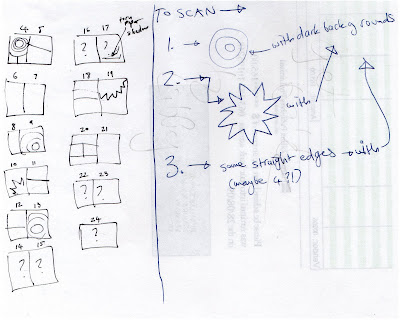 4 5
6 7
8 9
10 11
12 13
14 15
? ?
16 17
? ?
torn
paper
shadow
18 19
20 21
22 23
? ?
24
?
TO SCAN
1.
with dark backgrounds
2.
with
3. some straight edges with
(maybe 4?!)